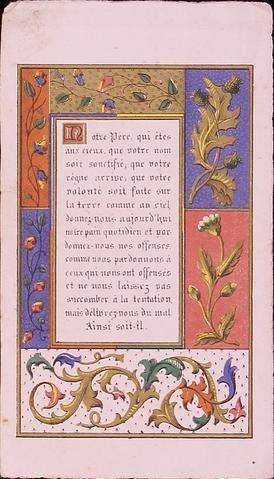 Notre Père, qui êtes
aux cieux, que votre nom
soit sanctifié, que votre
règne arrive, que votre
volonté soit faite sur
la terre comme au ciel,
donnez-nous aujourd'hui
notre pain quotidien et par-
donnez-nous nos offenses,
comme nous pardonnons à
ceux qui nous ont offensés
et ne nous laissez pas
succomber à la tentation,
mais délivrez-nous du mal.
Ainsi soit-il.